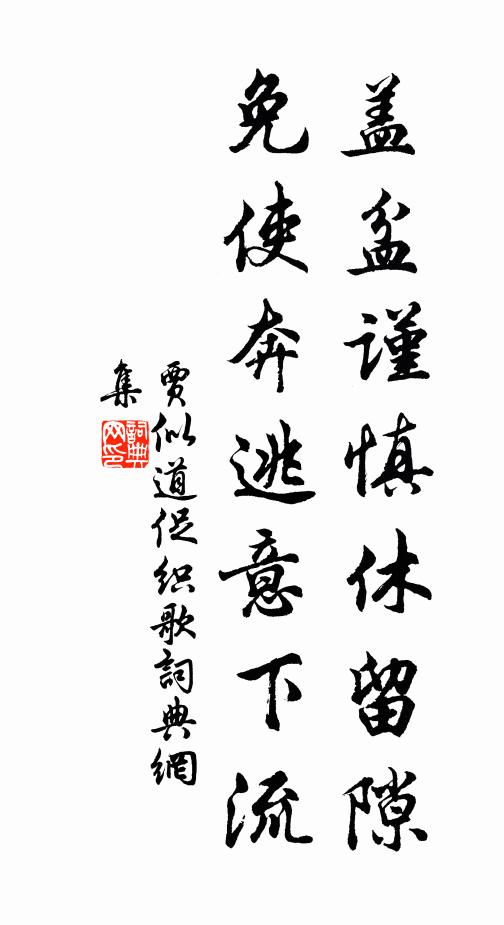 盖盆謹慎休留隙
免使奔逃意下流
賈似道促织歌詞典網
集
詞典网印